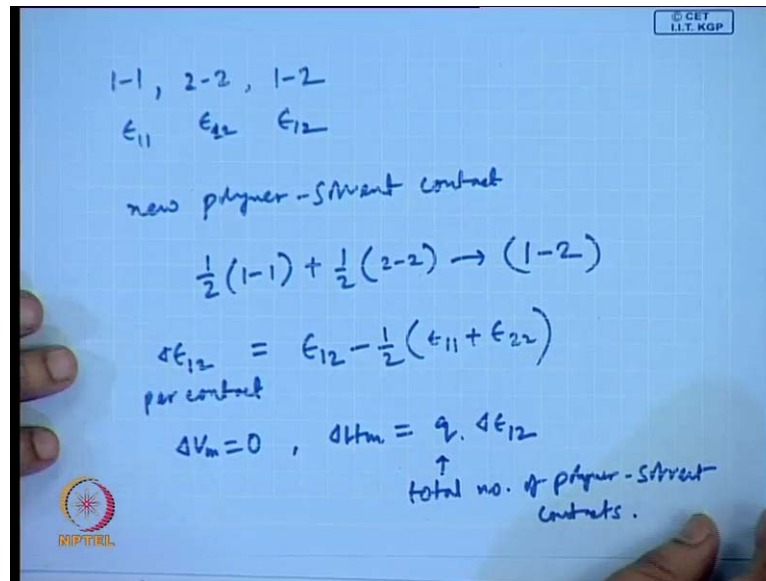 © CET
I.I.T. KGP
1-1 , 2-2 , 1-2
ϵ11 ϵ22 ϵ12
new polymer-solvent contact
1/2 (1-1) + 1/2 (2-2) → (1-2)
Δϵ12 = ϵ12 - 1/2 (ϵ11 + ϵ22)
per contact
ΔVm = 0 , ΔHm = q. Δϵ12
↑
total no. of polymer-solvent
contacts.
NPTEL